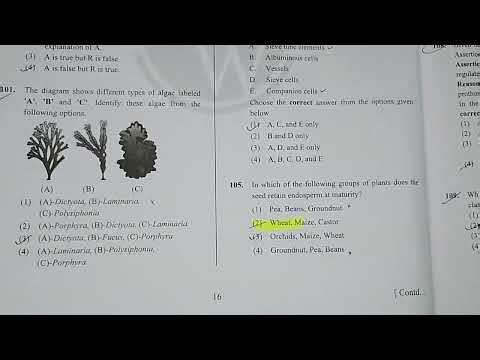 explanation of A.
(3) A is true but R is false
(4) A is false but R is true.
101. The diagram shows different types of algae labeled
'A', 'B' and 'C'. Identify these algae from the
following options.
(A) (B) (C)
(1) (A)-Dictyota, (B)-Laminaria,
(C)-Polysiphonia
(2) (A)-Porphyra, (B)-Dictyota, (C)-Laminaria
(3) (A)-Dictyota, (B)-Fucus, (C)-Porphyra
(4) (A)-Laminaria, (B)-Polysiphonia,
(C)-Porphyra
A. Sieve tube elements
B. Albuminous cells
C. Vessels
D. Sieve cells
E. Companion cells
Choose the correct answer from the options given
below
(1) A, C, and E only
(2) B and D only
(3) A, D, and E only
(4) A, B, C, D, and E
105. In which of the following groups of plants does the
seed retain endosperm at maturity?
(1) Pea, Beans, Groundnut
(2) Wheat, Maize, Castor
(3) Orchids, Maize, Wheat
(4) Groundnut, Pea, Beans
16
[ Contd...
108.
Assertio
Assertio
regulate
Reason
prothor
in the
correc
(1)
(2)
(3)
(4)
109.
clas
(1)
(3)
(4)